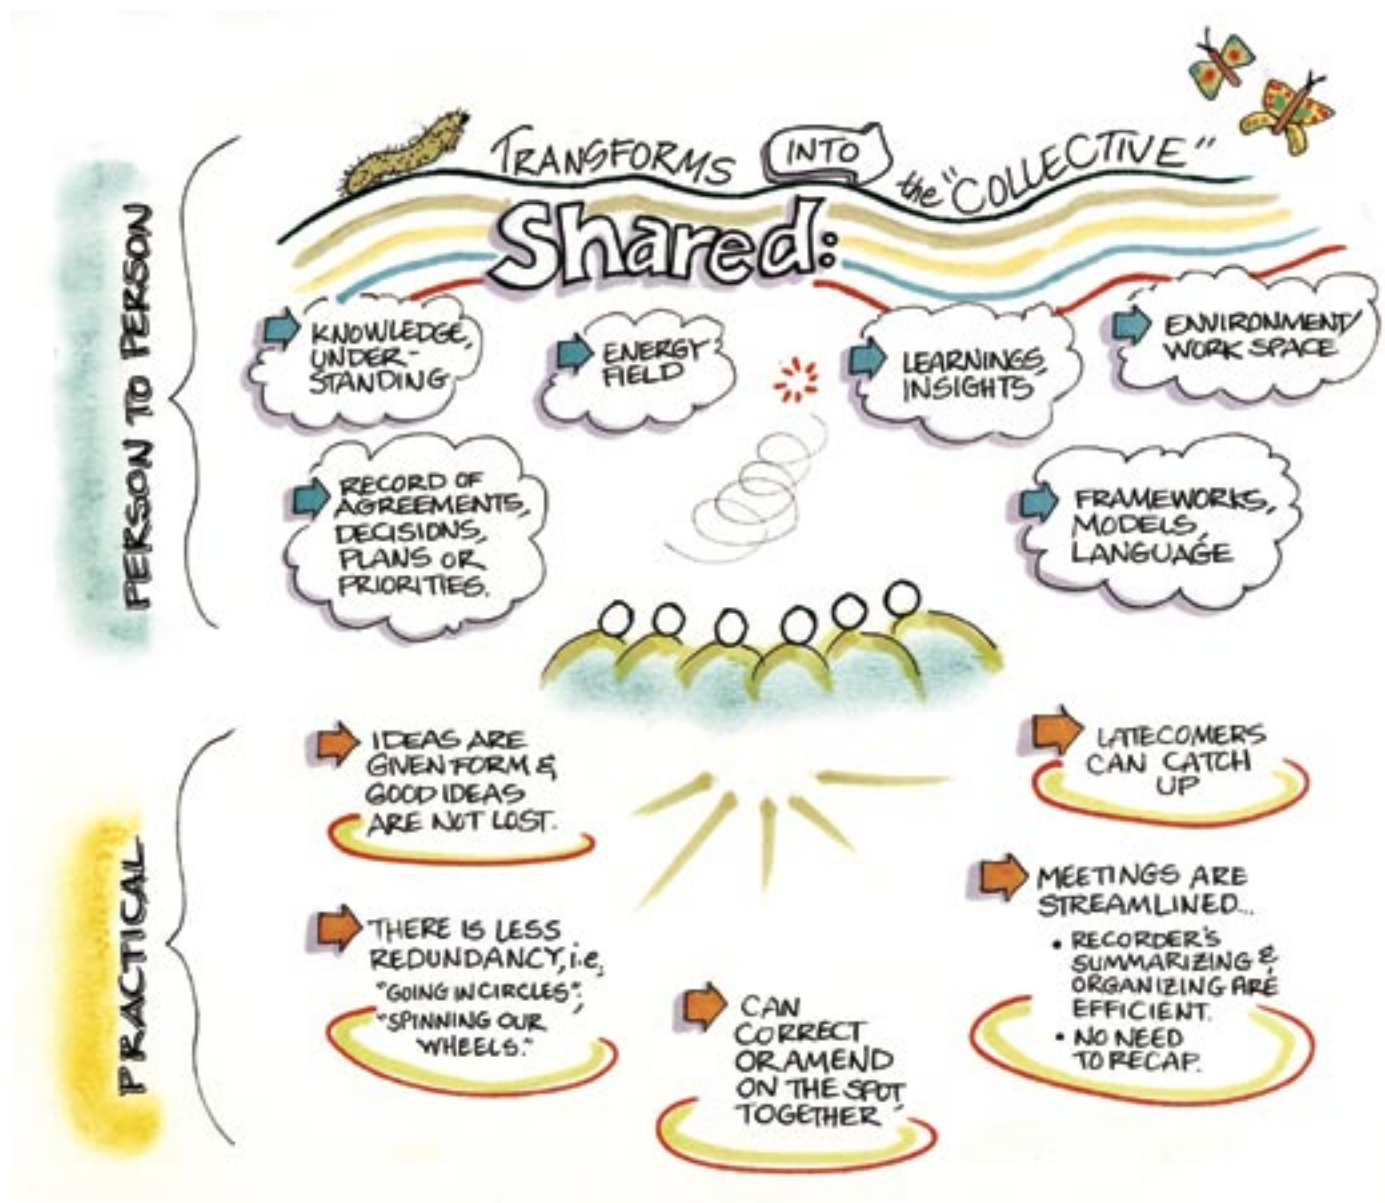 TRANSFORMS INTO the "COLLECTIVE"
Shared:
PERSON TO PERSON
KNOWLEDGE,
UNDER-
STANDING
ENERGY
FIELD
LEARNINGS,
INSIGHTS
ENVIRONMENT/
WORK SPACE
RECORD OF
AGREEMENTS,
DECISIONS,
PLANS OR
PRIORITIES.
FRAMEWORKS,
MODELS,
LANGUAGE
PRACTICAL
IDEAS ARE
GIVEN FORM &
GOOD IDEAS
ARE NOT LOST.
LATECOMERS
CAN CATCH
UP
THERE IS LESS
REDUNDANCY, i.e,
"GOING IN CIRCLES",
"SPINNING OUR
WHEELS."
CAN
CORRECT
OR AMEND
ON THE SPOT
TOGETHER
MEETINGS ARE
STREAMLINED...
• RECORDER'S
SUMMARIZING &
ORGANIZING ARE
EFFICIENT.
• NO NEED
TO RECAP.